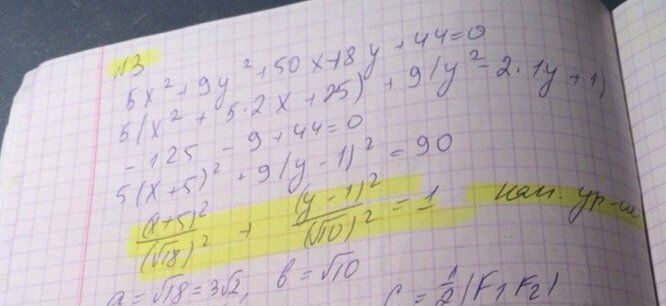 №3
5x² + 9y² + 50x - 18y + 44 = 0
5(x² + 5·2x + 25) + 9(y² - 2·1y + 1)
- 125 - 9 + 44 = 0
5(x+5)² + 9(y-1)² = 90
(x+5)²/(√18)² + (y-1)²/(√10)² = 1 кан. ур-ие
a = √18 = 3√2, b = √10 c = 1/2 |F₁F₂|